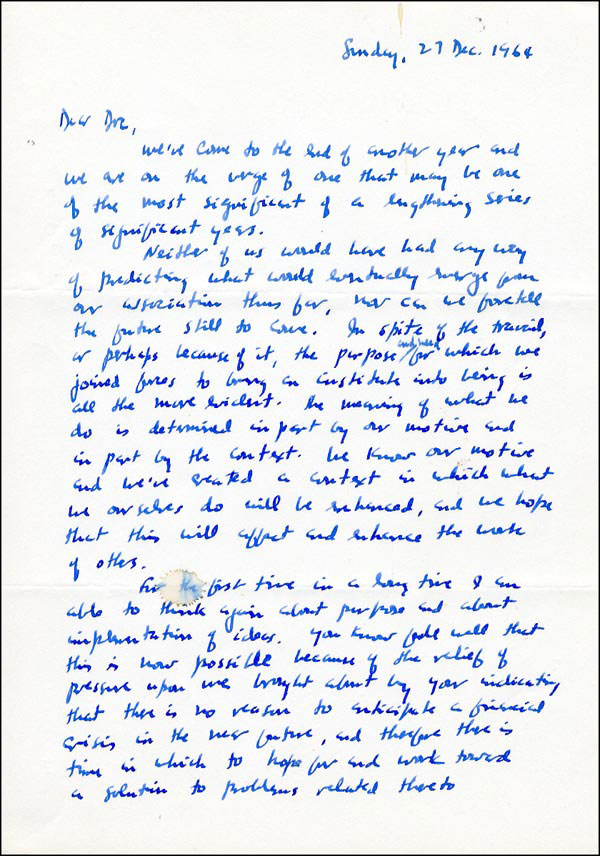 Sunday, 27 Dec. 1964
Dear Doc,
we've come to the end of another year and
we are on the verge of one that may be one
of the most significant of a lengthening series
of significant years.
Neither of us would have had any way
of predicting what would eventually emerge from
our association thus far, nor can we foretell
the future still to come. In spite of the travail,
or perhaps because of it, the purpose and need for which we
joined forces to bring an institute into being is
all the more evident. The meaning of what we
do is determined in part by our motive and
in part by the context. We know our motive
and we've created a context in which what
we ourselves do will be enhanced, and we hope
that this will affect and enhance the work
of others.
For the first time in a long time I am
able to think again about purpose and about
implementation of ideas. You know full well that
this is now possible because of the relief of
pressure upon me brought about by your indicating
that there is no reason to anticipate a financial
crisis in the near future, and therefore there is
time in which to hope for and work toward
a solution to problems related thereto